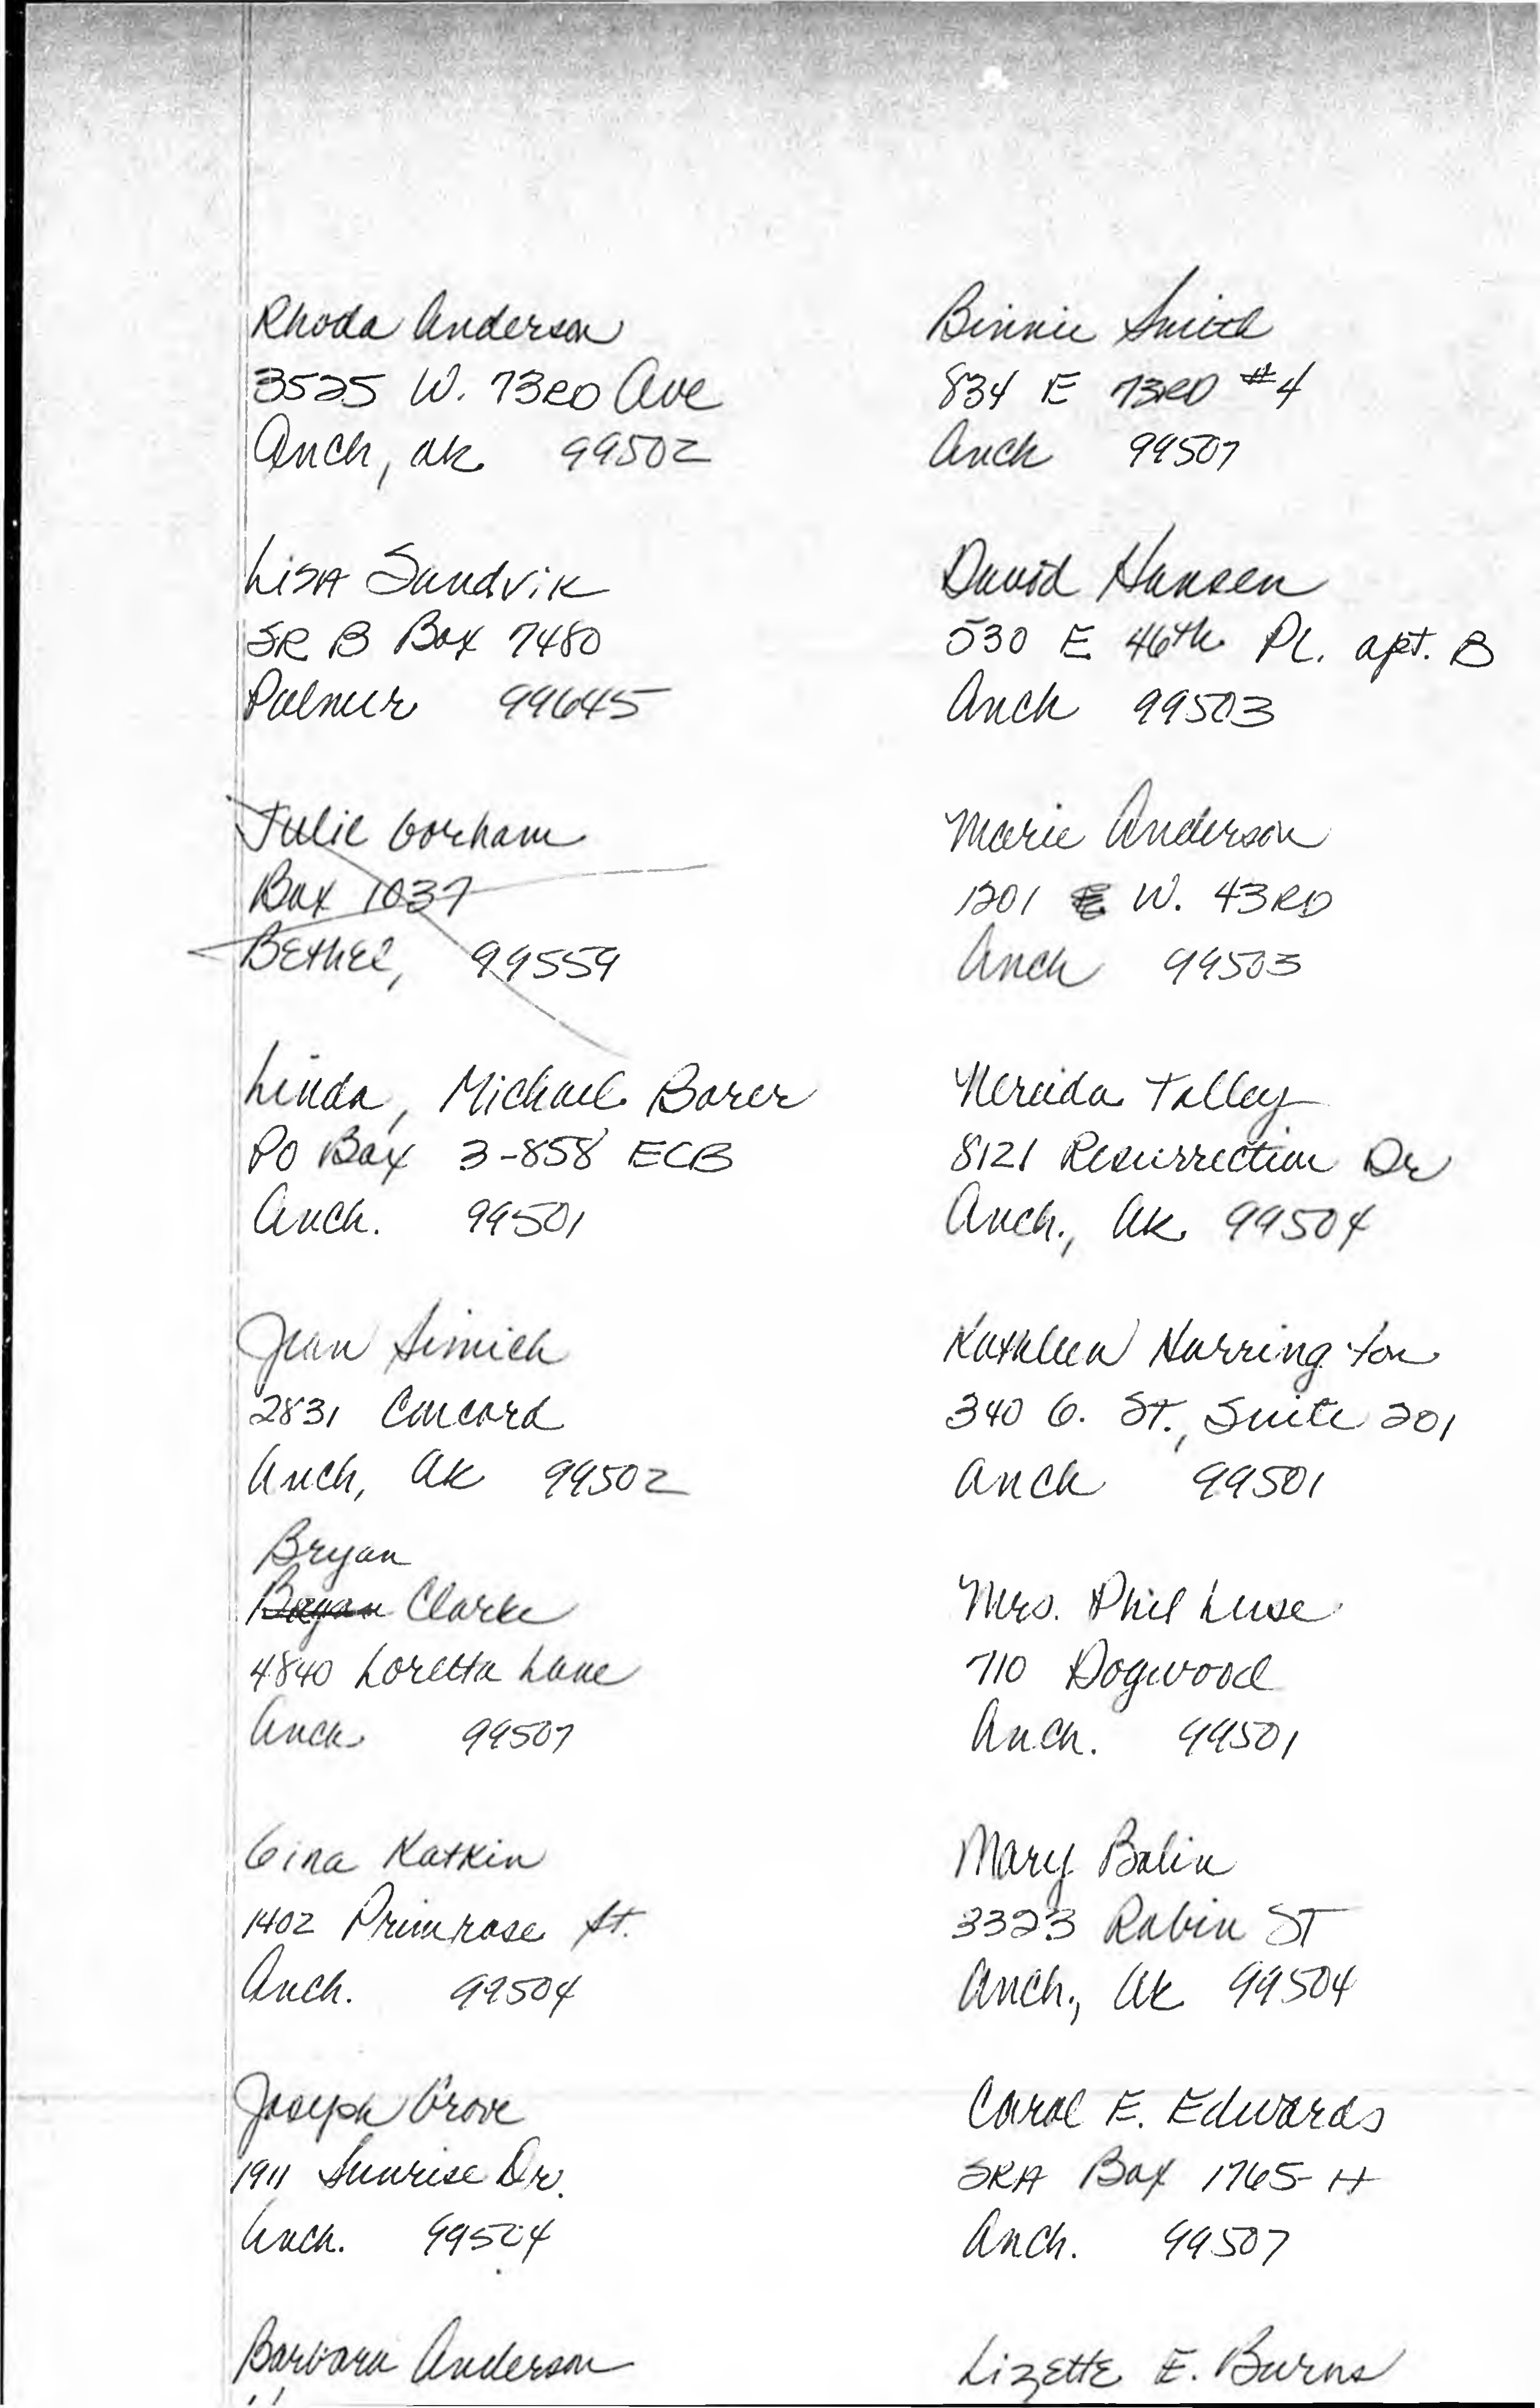 Rhoda Anderson
3525 W. 73RD Ave
Anch, AK 99502
Lisa Sandvik
SR B Box 7480
Palmer 99645
Julie Gorham
Box 1037
Bethel, 99559
Linda, Michael Borer
PO Box 3-858 ECB
Anch. 99501
Jean Simich
2831 Concord
Anch, AK 99502
Bryan
Bryan Clarke
4840 Loretta Lane
Anch 99507
Gina Katkin
1402 Primrose St.
Anch. 99504
Joseph Grove
1911 Sunrise Dr.
Anch. 99504
Barbara Anderson
Binnie Smith
834 E 73RD #4
Anch 99507
David Hansen
530 E 46th Pl. apt. B
Anch 99503
Marie Anderson
1201 W. 43RD
Anch 99503
Nereida Talley
8121 Resurrection Dr
Anch., AK 99504
Kathleen Harrington
340 G. St., Suite 201
Anch 99501
Mrs. Phil Luse
710 Dogwood
Anch. 99501
Mary Bolin
3323 Robin ST
Anch., AK 99504
Carol E. Edwards
SRA Box 1765-H
Anch. 99507
Lizette E. Burns